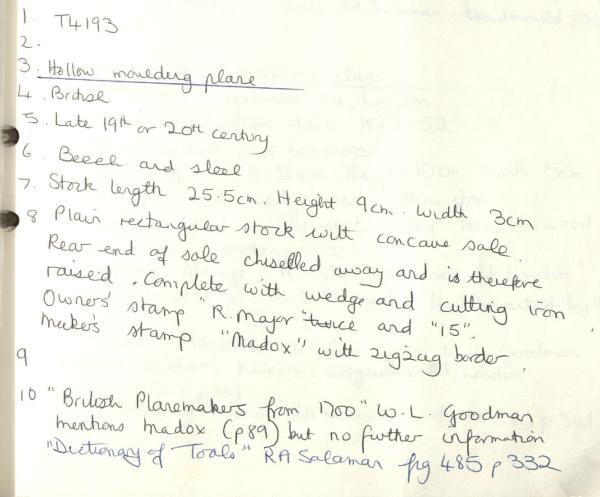 1. T4193
2.
3. Hollow moulding plane
4. British
5. Late 19th or 20th century
6. Beech and steel
7. Stock length 25.5cm. Height 9cm. Width 3cm
8 Plain rectangular stock with concave sole.
Rear end of sole chiselled away and is therefore
raised. Complete with wedge and cutting iron.
Owners' stamp "R. Major" twice and "15".
Maker's stamp "Madox" with zigzag border.
9
10 "British Planemakers from 1700" W.L. Goodman
mentions Madox (p89) but no further information
"Dictionary of Tools" RA Salaman fig 485 p 332